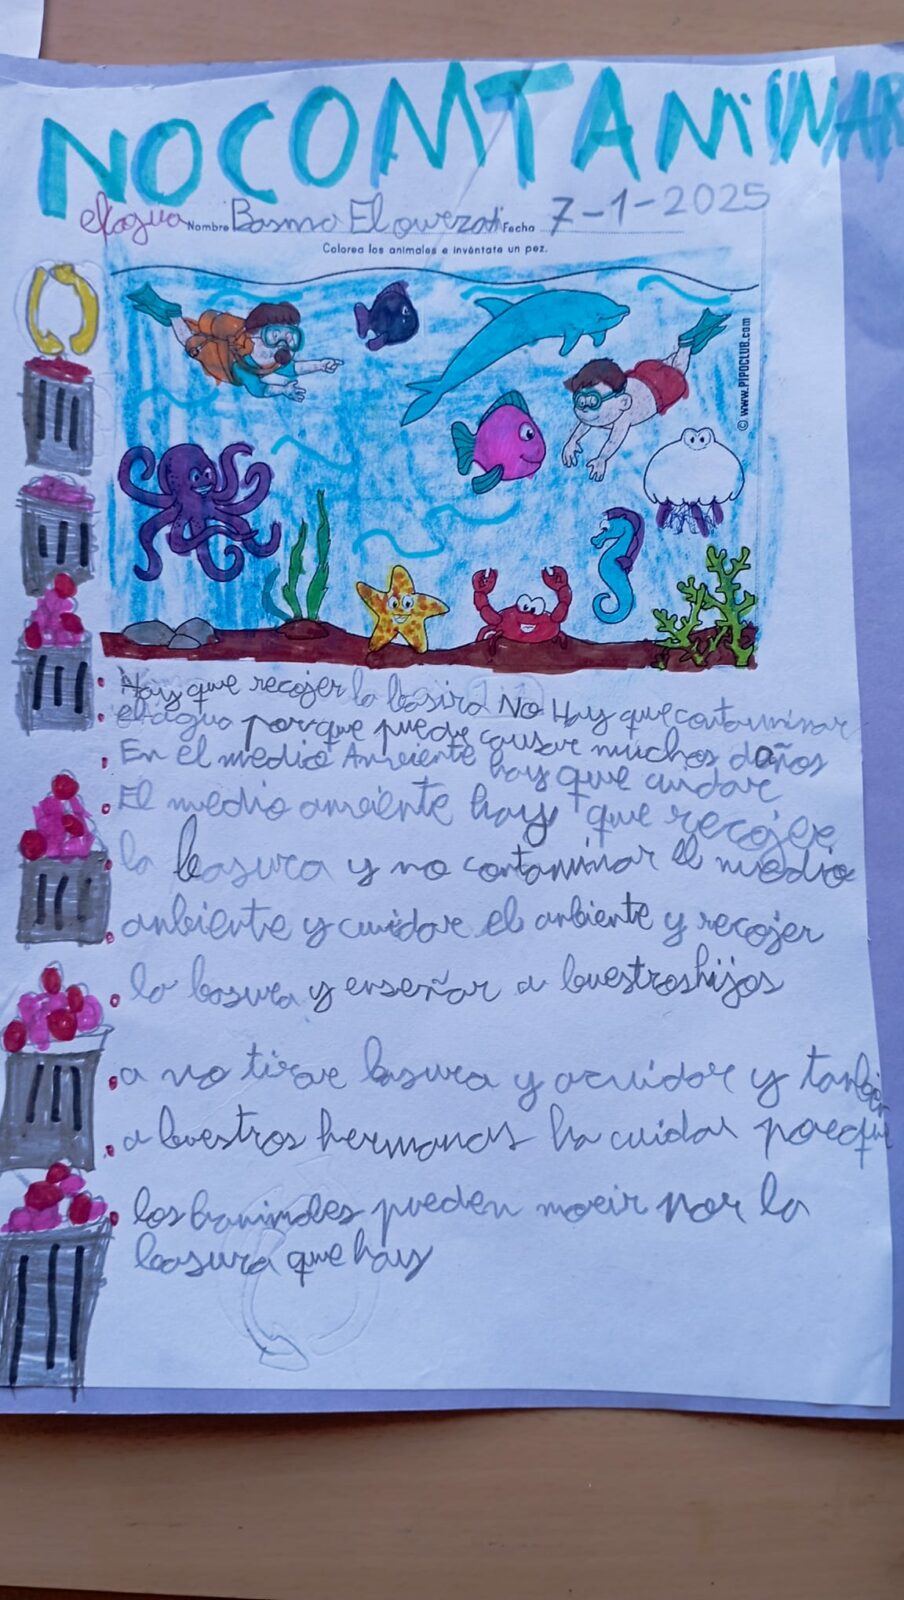 NO COMTAMINAR
el agua Nombre Basma El Fecha 7-1-2025
Colorea los animales e invéntate un pez.
© www.PIPOCLUB.com
Hay que recojer la basura No Hay que contaminar
el agua porque puede causar muchos daños
En el medio Anviente hay que cuidar
El medio anviente hay que recojer
la basura y no contaminar el medio
anbiente y cuidar el anbiente y recojer
la basura y enseñar a buestros hijos
a no tirar basura y acuidar y tanbien
a buestros hermanos ha cuidar porque
los hanimales pueden morir por la
basura que hay